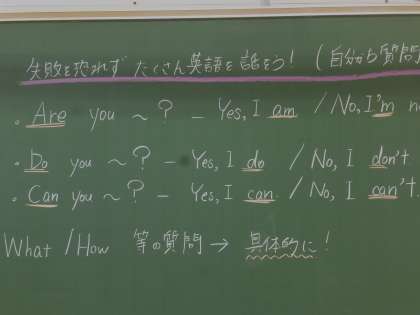 失敗を恐れず たくさん英語を話そう! (自分から質問
・Are you ~ ? – Yes, I am / No, I'm no
・Do you ~ ? – Yes, I do / No, I don't
・Can you ~ ? – Yes, I can. / No, I can't.
What / How 等の質問 → 具体的に!